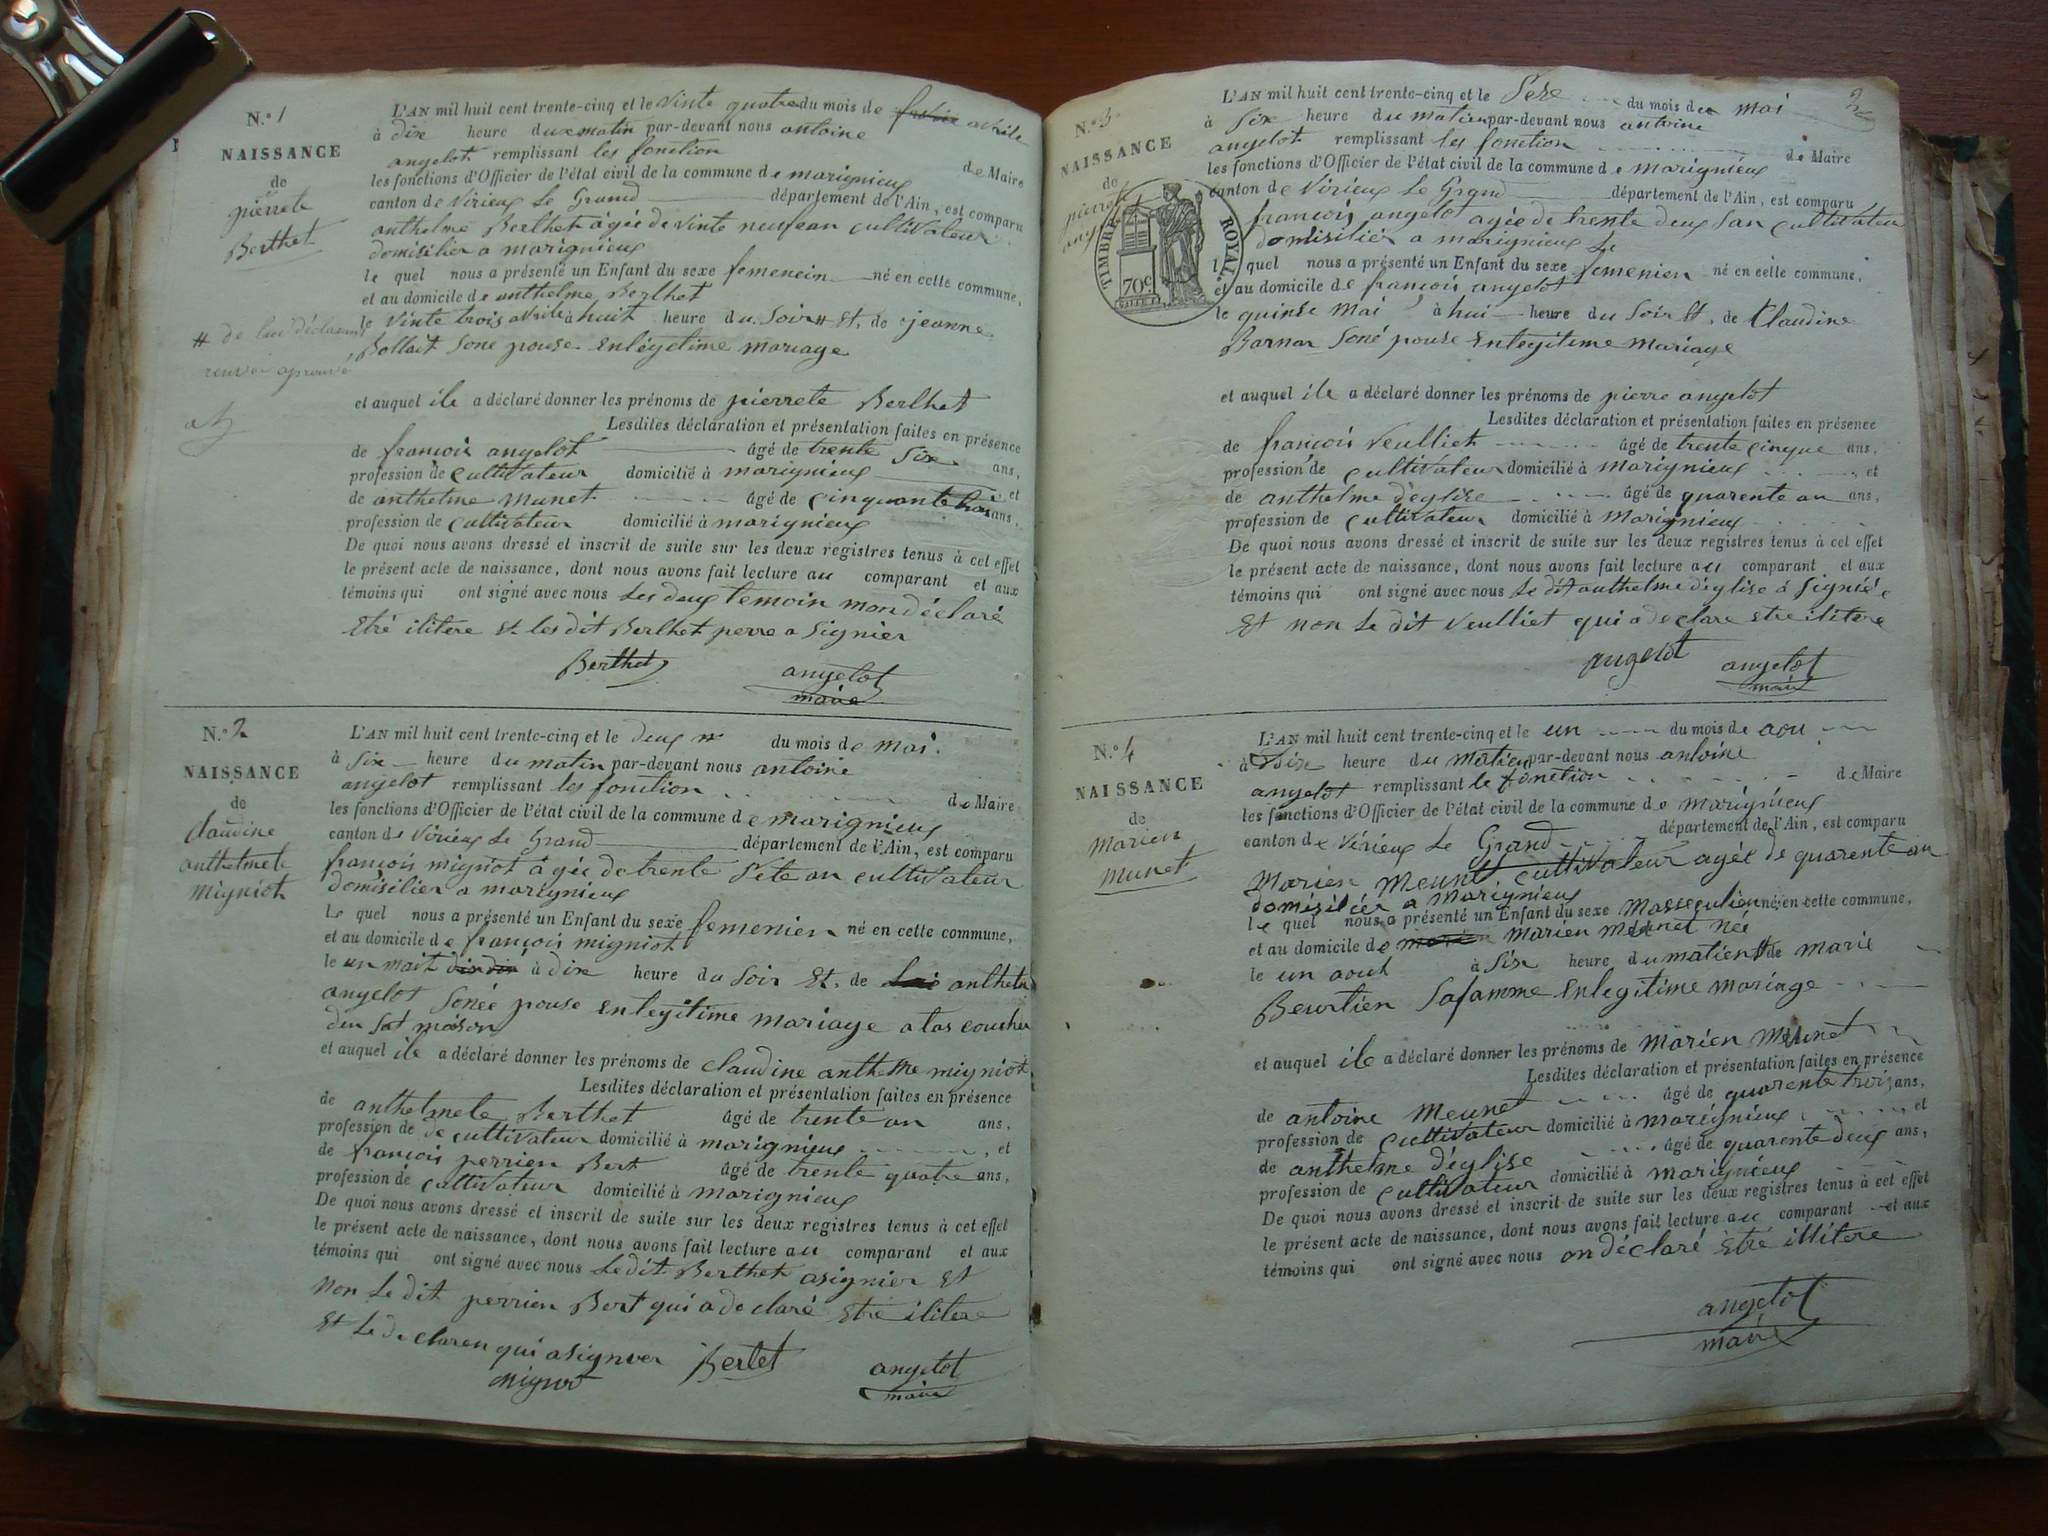 N.º 1
NAISSANCE
de
pierrete
Berthet
L'AN mil huit cent trente-cinq et le vinte quatre du mois de avrile
à dix heure du matin par-devant nous antoine
angelot remplissant les fonction de Maire
les fonctions d'Officier de l'état civil de la commune de marignieux
canton de Virieux Le Grand département de l'Ain, est comparu
anthelme Berthet âgée de vinte neuf ean cultivateur
domisilier a marignieux
le quel nous a présenté un Enfant du sexe femenein né en cette commune,
et au domicile de anthelme Berthet
le vinte trois avrile à huit heure du Soir # Et. de jeanne
Sone pouse Enlégitime mariage
# de lui déclarant
et auquel ile a déclaré donner les prénoms de pierrete Berthet
Lesdites déclaration et présentation faites en présence
de françois angelot âgé de trente Six ans,
profession de cultivateur domicilié à marignieux et
de anthelme munet âgé de cinquante ans,
profession de cultivateur domicilié à marignieux
De quoi nous avons dressé et inscrit de suite sur les deux registres tenus à cet effet
le présent acte de naissance, dont nous avons fait lecture au comparant et aux
témoins qui ont signé avec nous Les deux temoin mon déclaré
Etré ilitere Et les dit Berthet perre a Signier
Berthet angelot
maire
N.º 2
NAISSANCE
de
claudine
anthelmete
Migniot
L'AN mil huit cent trente-cinq et le deux # du mois de mai.
à Six heure du matin par-devant nous antoine
angelot remplissant les fonction de Maire
les fonctions d'Officier de l'état civil de la commune de marignieux
canton de Virieux Le Grand département de l'Ain, est comparu
françois migniot âgée de trente Sete an cultivateur
domisilier a marignieux
Le quel nous a présenté un Enfant du sexe femenien né en cette commune,
et au domicile de françois migniot
le un mait à dix heure du Soir Et. de
angelot Sonée pouse Enlegitime mariage a las coucher
den Sat maison
et auquel ile a déclaré donner les prénoms de claudine anthelme migniot
Lesdites déclaration et présentation faites en présence
de anthelmete Berthet âgé de trente an ans,
profession de de cultivateur domicilié à marignieux , et
de françois perrien Bert âgé de trente quatre ans,
profession de cultivateur domicilié à marignieux
De quoi nous avons dressé et inscrit de suite sur les deux registres tenus à cet effet
le présent acte de naissance, dont nous avons fait lecture au comparant et aux
témoins qui ont signé avec nous Le dit Berthet asignier Et
non Le dit perrien Bert qui a declaré Etre ilitere
Et Le declaren qui asignier Bertet angelot
migniot maire
2
N.º 3
NAISSANCE
de
pierrete
angelot
TIMBRE ROYAL
70c
L'AN mil huit cent trente-cinq et le Seze du mois de mai
à Six heure du matien par-devant nous antoine
angelot remplissant les fonction de Maire
les fonctions d'Officier de l'état civil de la commune de marignieux
canton de Virieux Le Grand département de l'Ain, est comparu
françois angelot agée de trente deux San cultivateur
domisilier a marignieux Le
quel nous a présenté un Enfant du sexe femenien né en cette commune,
et au domicile de françois angelot
le quinse Mai à hui heure du Soir Et. de Claudine
Barnar Soné pouse Enlegitime Mariage
et auquel ile a déclaré donner les prénoms de pierre angelot
Lesdites déclaration et présentation faites en présence
de françois veulliet âgé de trente cinque ans,
profession de cultivateur domicilié à Marignieux , et
de anthelme d'églize âgé de quarente an ans,
profession de cultivateur domicilié à Marignieux
De quoi nous avons dressé et inscrit de suite sur les deux registres tenus à cet effet
le présent acte de naissance, dont nous avons fait lecture au comparant et aux
témoins qui ont signé avec nous Le dit anthelme d'église à Signiée
Et non Le dit veulliet qui a declare etre ilitere
angelot angelot
maire
N.º 4
NAISSANCE
de
Marien
Munet
L'AN mil huit cent trente-cinq et le un du mois de aou
à dix heure du matien par-devant nous antoine
angelot remplissant le fonction de Maire
les fonctions d'Officier de l'état civil de la commune de Marignieux
canton de Virieux Le Grand département de l'Ain, est comparu
Marien Meunet cultivateur agée de quarente an
domisilier a Marignieux
le quel nous a présenté un Enfant du sexe Masseculien né en cette commune,
et au domicile de Marien Meunet Née
le un aout à Six heure du matien # de Marie
Beurtien Safamme Enlegitime mariage
et auquel ile a déclaré donner les prénoms de Marien Meunet
Lesdites déclaration et présentation faites en présence
de antoine Meunet âgé de quarente trois ans,
profession de cultivateur domicilié à Marignieux , et
de anthelme d'églize âgé de quarente deux ans,
profession de cultivateur domicilié à Marignieux
De quoi nous avons dressé et inscrit de suite sur les deux registres tenus à cet effet
le présent acte de naissance, dont nous avons fait lecture au comparant et aux
témoins qui ont signé avec nous on déclaré Etré illitere
angelot
maire